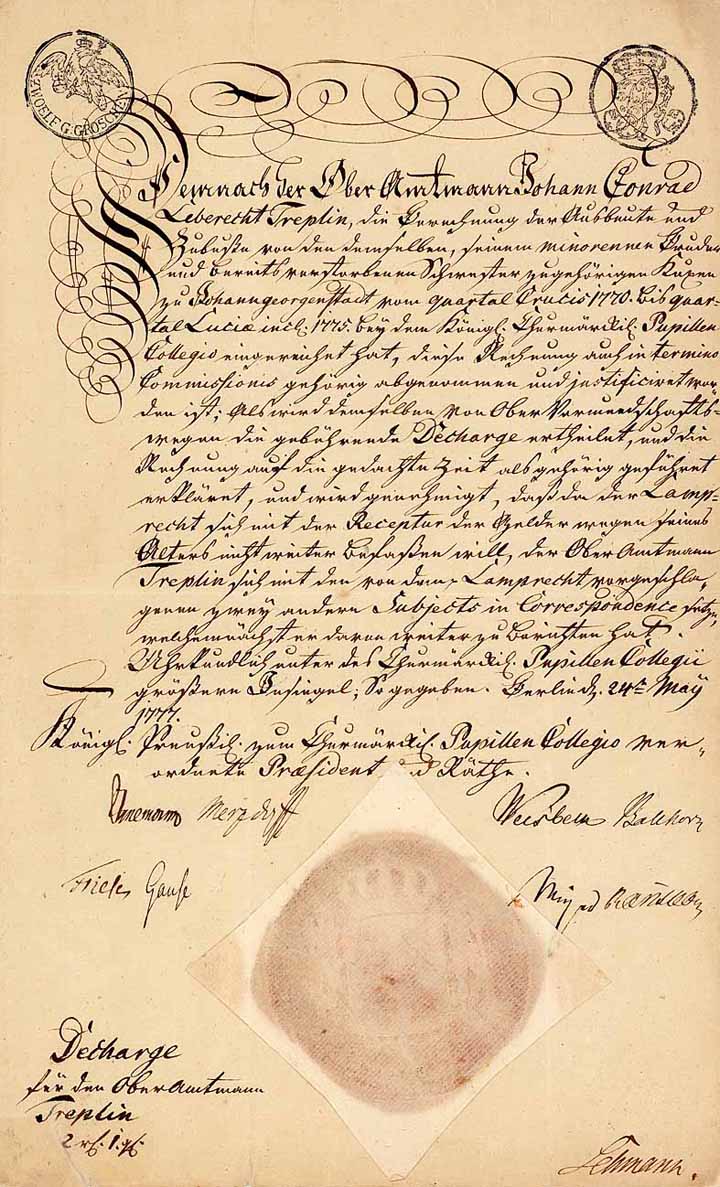 ZWOELF G. GROSCHEN
Demnach der Ober Amtmann Johann Conrad
Leberecht Treplin, die Berechnung der Ausbeute und
Zubuße von den demselben, seinem minorennen Bruder
und bereits verstorbenen Schwester zugehörigen Kuxen
zu Johanngeorgenstadt vom quartal Crucis 1770. bis quar-
tal Luciæ incl. 1775. bey dem Königl. Churmärckl. Pupillen
Collegio eingereichet hat, diese Rechnung auch in termino
Commissionis gehörig abgenommen und justificiret wor-
den ist; Als wird demselben von Ober Vormundschafts-
wegen die gebührende Decharge ertheilet, und die
Rechnung auf die gedachte Zeit als gehörig geführet
erkläret, und wird genehmigt, daß da der Lamp-
recht sich mit der Receptur der Gelder wegen seines
Alters nicht weiter befaßen will, der Ober Amtmann
Treplin sich mit den von dem Lamprecht vorgeschla-
genen zwey andern Subjects in Correspondence setze,
welchemnächst er davon weiter zu berichten hat.
Uhrkundlich unter des Churmärckl. Pupillen Collegii
größern Insiegel; So gegeben. Berlin d. 24ten May
1777.
Königl. Preußl. zum Churmärckl. Pupillen Collegio ver-
ordnete Præsident und Räthe.
Merzdorff
Friese
Gause
Decharge
für den Ober Amtmann
Treplin
Lehmann.